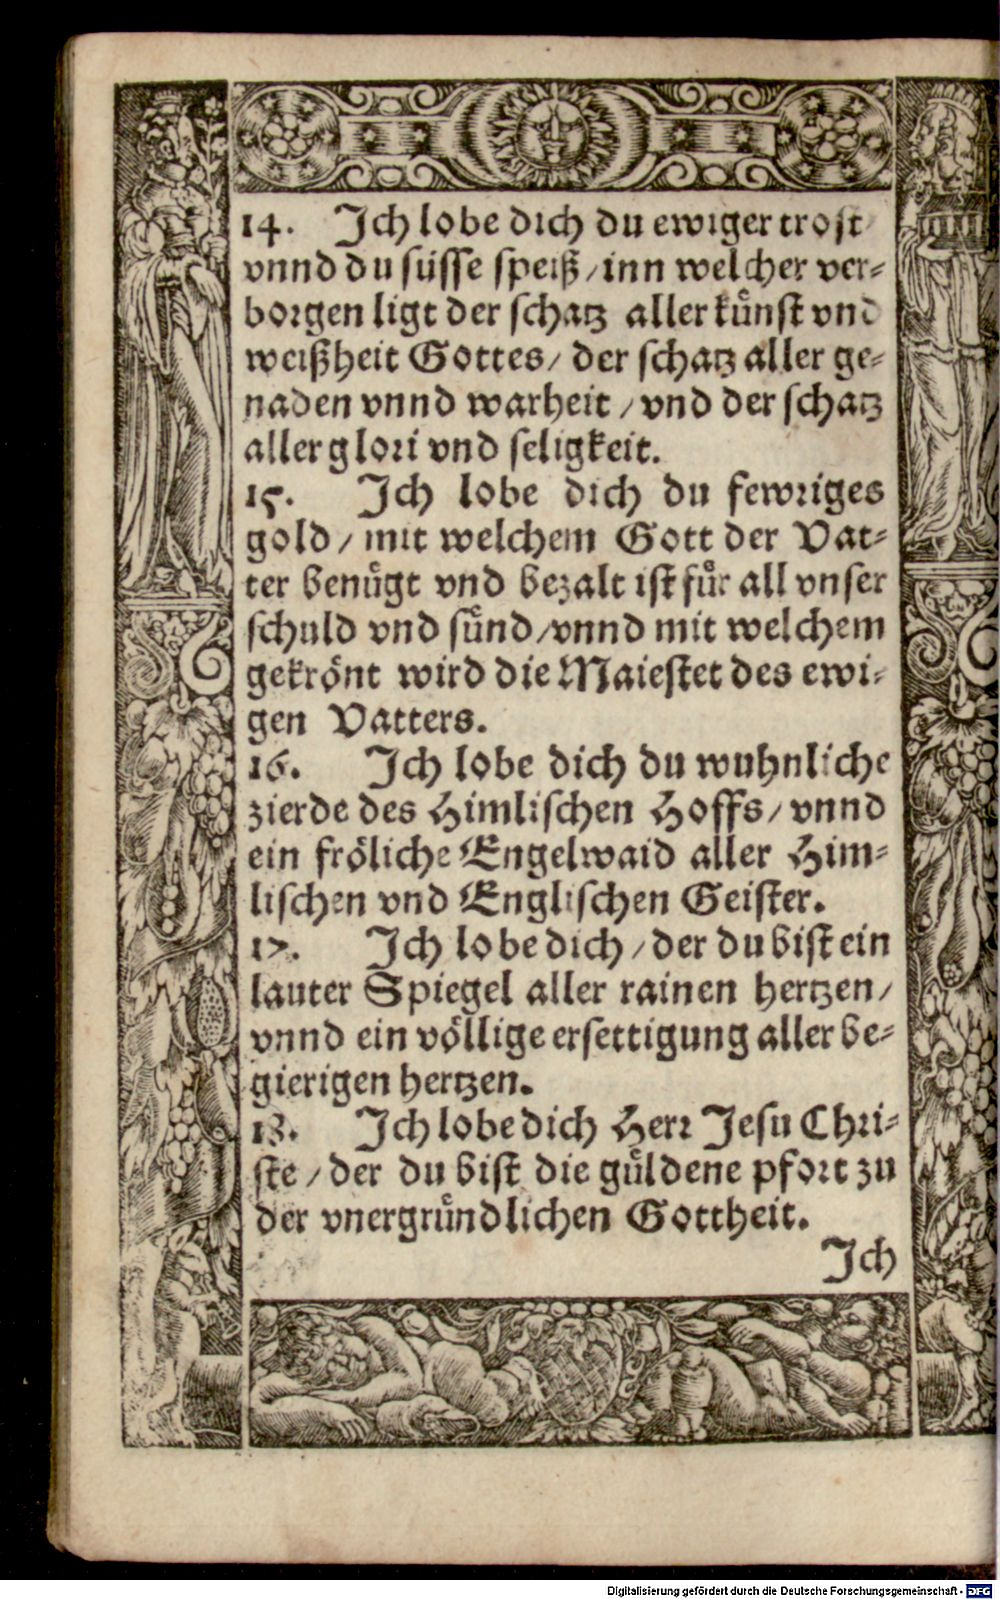 14. Ich lobe dich du ewiger trost
vnnd du süsse speiß/inn welcher ver-
borgen ligt der schatz aller kuͤnst vnd
weißheit Gottes/ der schatz aller ge-
naden vnnd warheit / vnd der schatz
aller glori vnd seligkeit.
15. Ich lobe dich du fewriges
gold/ mit welchem Gott der Vat-
ter benuͤgt vnd bezalt ist fuͤr all vnser
schuld vnd suͤnd/vnnd mit welchem
gekroͤnt wird die Maiestet des ewi-
gen Vatters.
16. Ich lobe dich du wuhnliche
zierde des Himlischen Hoffs/ vnnd
ein froͤliche Engelwaid aller Him-
lischen vnd Englischen Geister.
17. Ich lobe dich/der du bist ein
lauter Spiegel aller rainen hertzen/
vnnd ein voͤllige ersettigung aller be-
gierigen hertzen.
18. Ich lobe dich Herr Jesu Chri-
ste/der du bist die guͤldene pfort zu
der vnergruͤndlichen Gottheit.
Ich
Digitalisierung gefördert durch die Deutsche Forschungsgemeinschaft - DFG